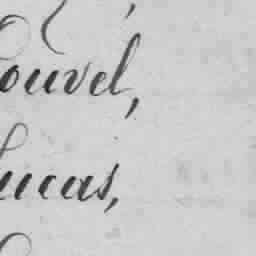 ouvel,
ucas,